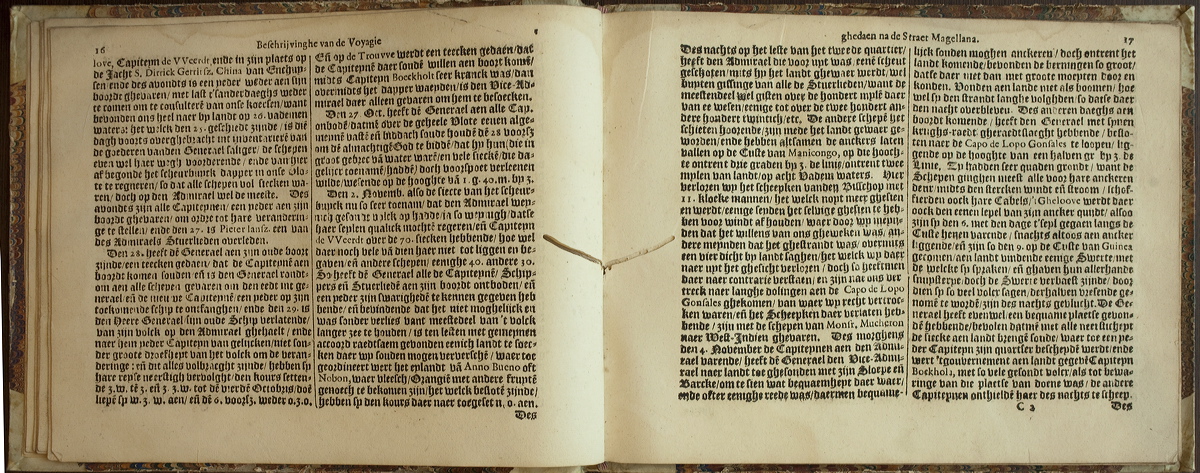 16
Beschrijvinghe van de Voyagie
love, Capiteyn de VVeerdt, ende in zijn plaets op
de Jacht S. Dirrick Gerritsz. China van Enchuy-
sen ende des avondts is een yeder weder aen zijn
boordt ghevaren/ met last s'anderdaeghs weder
te comen om te consulteren van ons
bevonden ons heel naer by landt op 20. vademen
water at het welck den 25. geschiedt zijnde/ is die
dagh voorts overghebracht int inventariẽ van
de goederen vanden Generael saliger/ de schepen
af begonde het scheurbuyck dapper in onse Vlo-
te te regneren/ so dat alle schepen vol siecken wa-
ren/ doch op den Admirael wel de meeste. Des
avondts zijn alle Capiteynen/ een yeder aen zijn
boordt ghevaren/ om ordre tot hare veranderin-
ge te stellen/ ende den 27. is Pieter Iansz. een van
des Admiraels Stuerlieden overleden.
Den 28. heeft de Generael aen zijn oude boort
zijnde/ een teecken gedaen/ dat de Capiteynẽ aen
boordt komen souden eñ is den Generael rondt-
om aen alle schepen gevaren om den eedt int ge-
nerael/ eñ de nieuwe Capiteynẽ een yeder op zijn
toekomende schip te ontfanghen/ ende den 29. is
den Heere Generael sijn oude Schip verlatende/
van zijn volck op den Admirael ghehaelt/ ende
naer hem yeder Capiteyn van gelijcken/ niet son-
der groote droefheyt van het volck om de veran-
deringe: eñ dit alles volbracht zijnde/ hebben sp
hare reyse neerstigh vervolght/ den kours setten-
de z.w. tẽ z. eñ z. z.w. tot dẽ vierdẽ Octobris/ doẽ
liepẽ sp w. z. w. aen/ eñ dẽ 6. voorsz. weder o.z.o.
Eñ op de Trouwe werdt een teecken gedaen/ dat
de Capiteynẽ daer soudẽ willen aen boort komẽ/
midts Capiteyn Bockholt seer kranck was/ dan
overmidts het dapper waeyden/ is den Vice-Ad-
mirael daer alleen gevaren om hem te besoecken.
Den 27. Oct. heeft dẽ Generael aen alle Cap.
ombodẽ/ datmẽ over de geheele Vlote eenen alge-
menẽ vastẽ eñ biddach soude houdẽ dẽ 28 voorsz
om dẽ almachtigẽ God te biddẽ/ dat hy hun/ die in
groot gebrec vã water warẽ/ en vele sieckẽ/ die da-
gelijcx toenamẽ/ haddẽ/ doch voorspoet verleenen
wilde/ wesende op de hooghte vã 1. g. 40. m. by z.
Den 2. Novemb. also de siecte van het scheur-
buyck nu so seer toenam/ dat den Admirael wey-
haer seylen qualick mochtẽ regeren/ eñ Capiteyn
de VVeerdt over de 70. siecken hebbende/ hoe wel
daer noch vele vã dien haer niet tot liggen en be-
gaven/ eñ andere schepen/ eenighe 40. andere 30.
So heeft dẽ Generael alle de Capiteynẽ/ Schip-
pers eñ Stuerliedẽ aen zijn boordt ontboden/ eñ
een yeder zijn swarighedẽ te kennen gegeven heb
bende/ eñ bevindende dat het niet moghelijck en
was sonder verlies vant meestedeel van 't volck
langer zee te houden/ is ten lesten met gemeynen
accoord raedtsaem gevonden eenich landt te soec-
ken daer wy souden mogen ververschẽ/ waer toe
geordineert wert het eylandt vã Anno Bueno oft
Nobon, waer vleesch/ Orangiẽ met andere fruytẽ
genoech te bekomen zijn/ het welck beslotẽ zijnde/
hebben sp den kours daer naer toegeset n. o. aen.
Des
ghedaen na de Straet Magellana.
17
Des nachts op het leste van het tweede quartier/
heeft den Admirael die voor upt was/ eenẽ scheut
geschoten/ mits hp het landt ghewaer werdt/ wel
bupten gissinge van alle de Stuerlieden/ want de
meestendeel wel gisten over de hondert mylẽ daer
van te wesen/ eenige tot over de twee hondert an-
dere hondert twintich/ etc. De andere schepẽ het
schieten hoorende/ zijn mede het landt gewaer ge-
worden/ ende hebben altsamen de anckers laten
vallen op de Custe van Manicongo, op die hooch-
te ontrent drie graden by z. de linie/ ontrent twee
mylen van landt/ op acht Vadem waters. Hier
verloren wy het scheepken vanden Bisschop met
11. kloeke mannen/ het welck noyt meer ghesien
en werdt/ eenige seyden het selvige ghesien te heb-
ben voor windt af houden/ waer door wy mepn-
den dat het willens van ons gheweken was/ an-
dere meynden dat het ghestrandt was/ overmits
een vier dicht by landt saghen/ het welck wy daer
naer upt het ghesicht verloren/ doch is hedtmen
daer naer contrarie verstaen/ en zijn nae ons ver
treck naer langhe dolingen aen de Capo de Lopo
Gonsales ghekomen/ van waer wy recht vertroc-
ken waren/ eñ het Scheepken daer verlaten heb-
bende/ zijn met de schepen van Monsr. Mucheron
naer West-Indien ghevaren. Des morghens
den 4. November de Capiteynen aen den Admi-
rael varende/ heeft dẽ Generael den Vice-Admi-
rael naer landt toe ghesonden met zijn Sloepe eñ
Barcke/ om te sien wat bequaemheyt daer waer/
ende ofter eenighe reede was/ daermen bequame-
lijck sonden moghen anckeren/ doch ontrent het
landt komende/ bevonden de berningen so groot/
datse daer niet dan met groote moeyten door en
konden. Vonden aen landt niet als boomen/ hoe
wel sp den strandt langhe volghden/ so datse daer
den nacht overbleven. Des anderen daeghs aen
boordt komende/ heeft den Generael met synen
krijghs-raedt gheraedtslaeght hebbende/ beslo-
ten naer de Capo de Lopo Gonsales te loopen/ lig-
gende op de hooghte van een halven gr by z. de
Linie. Sy hadden seer quaden grondt/ want de
Schepen ginghen meest alle voor hare anckeren
deur/ midts den stercken windt eñ stroom/ schof-
fierden oock hare Cabels/ 't Gheloove werdt daer
oock den eenen lepel van zijn ancker quijdt/ alsoo
zijn sp den 6. met den dage t'sepl gegaen langs de
Custe henen varende/ snachts altoos aen ancker
liggende/ eñ zijn so den 9. op de Custe van Guinea
gecomen/ aen landt vindende eenige Swerte/ met
de welcke sp spraken/ eñ ghaven hun allerhande
snupsterpe/ doch de Swerte verbaest zijnde/ door
dien sp so veel volcx sagen/ derhalven vresende ge-
nomẽ te wordẽ/ zijn des nachts gevlucht. De Ge-
nerael heeft evenwel een bequame plaetse gevon-
dẽ hebbende/ bevolen datmẽ met alle neersticheyt
de siecke aen landt brengẽ soude/ waer toe een ye-
der Capiteyn zijn quartier bescheydẽ werdt/ ende
wert 'tgouvernement aen landt gegebẽ Capiteyn
Bockholt, met so vele gesondt volcx/ als tot bewa-
ringe van die plaetse van doene was/ de andere
Capiteynen onthieldẽ haer des nachts te scheep.
C 2
Des